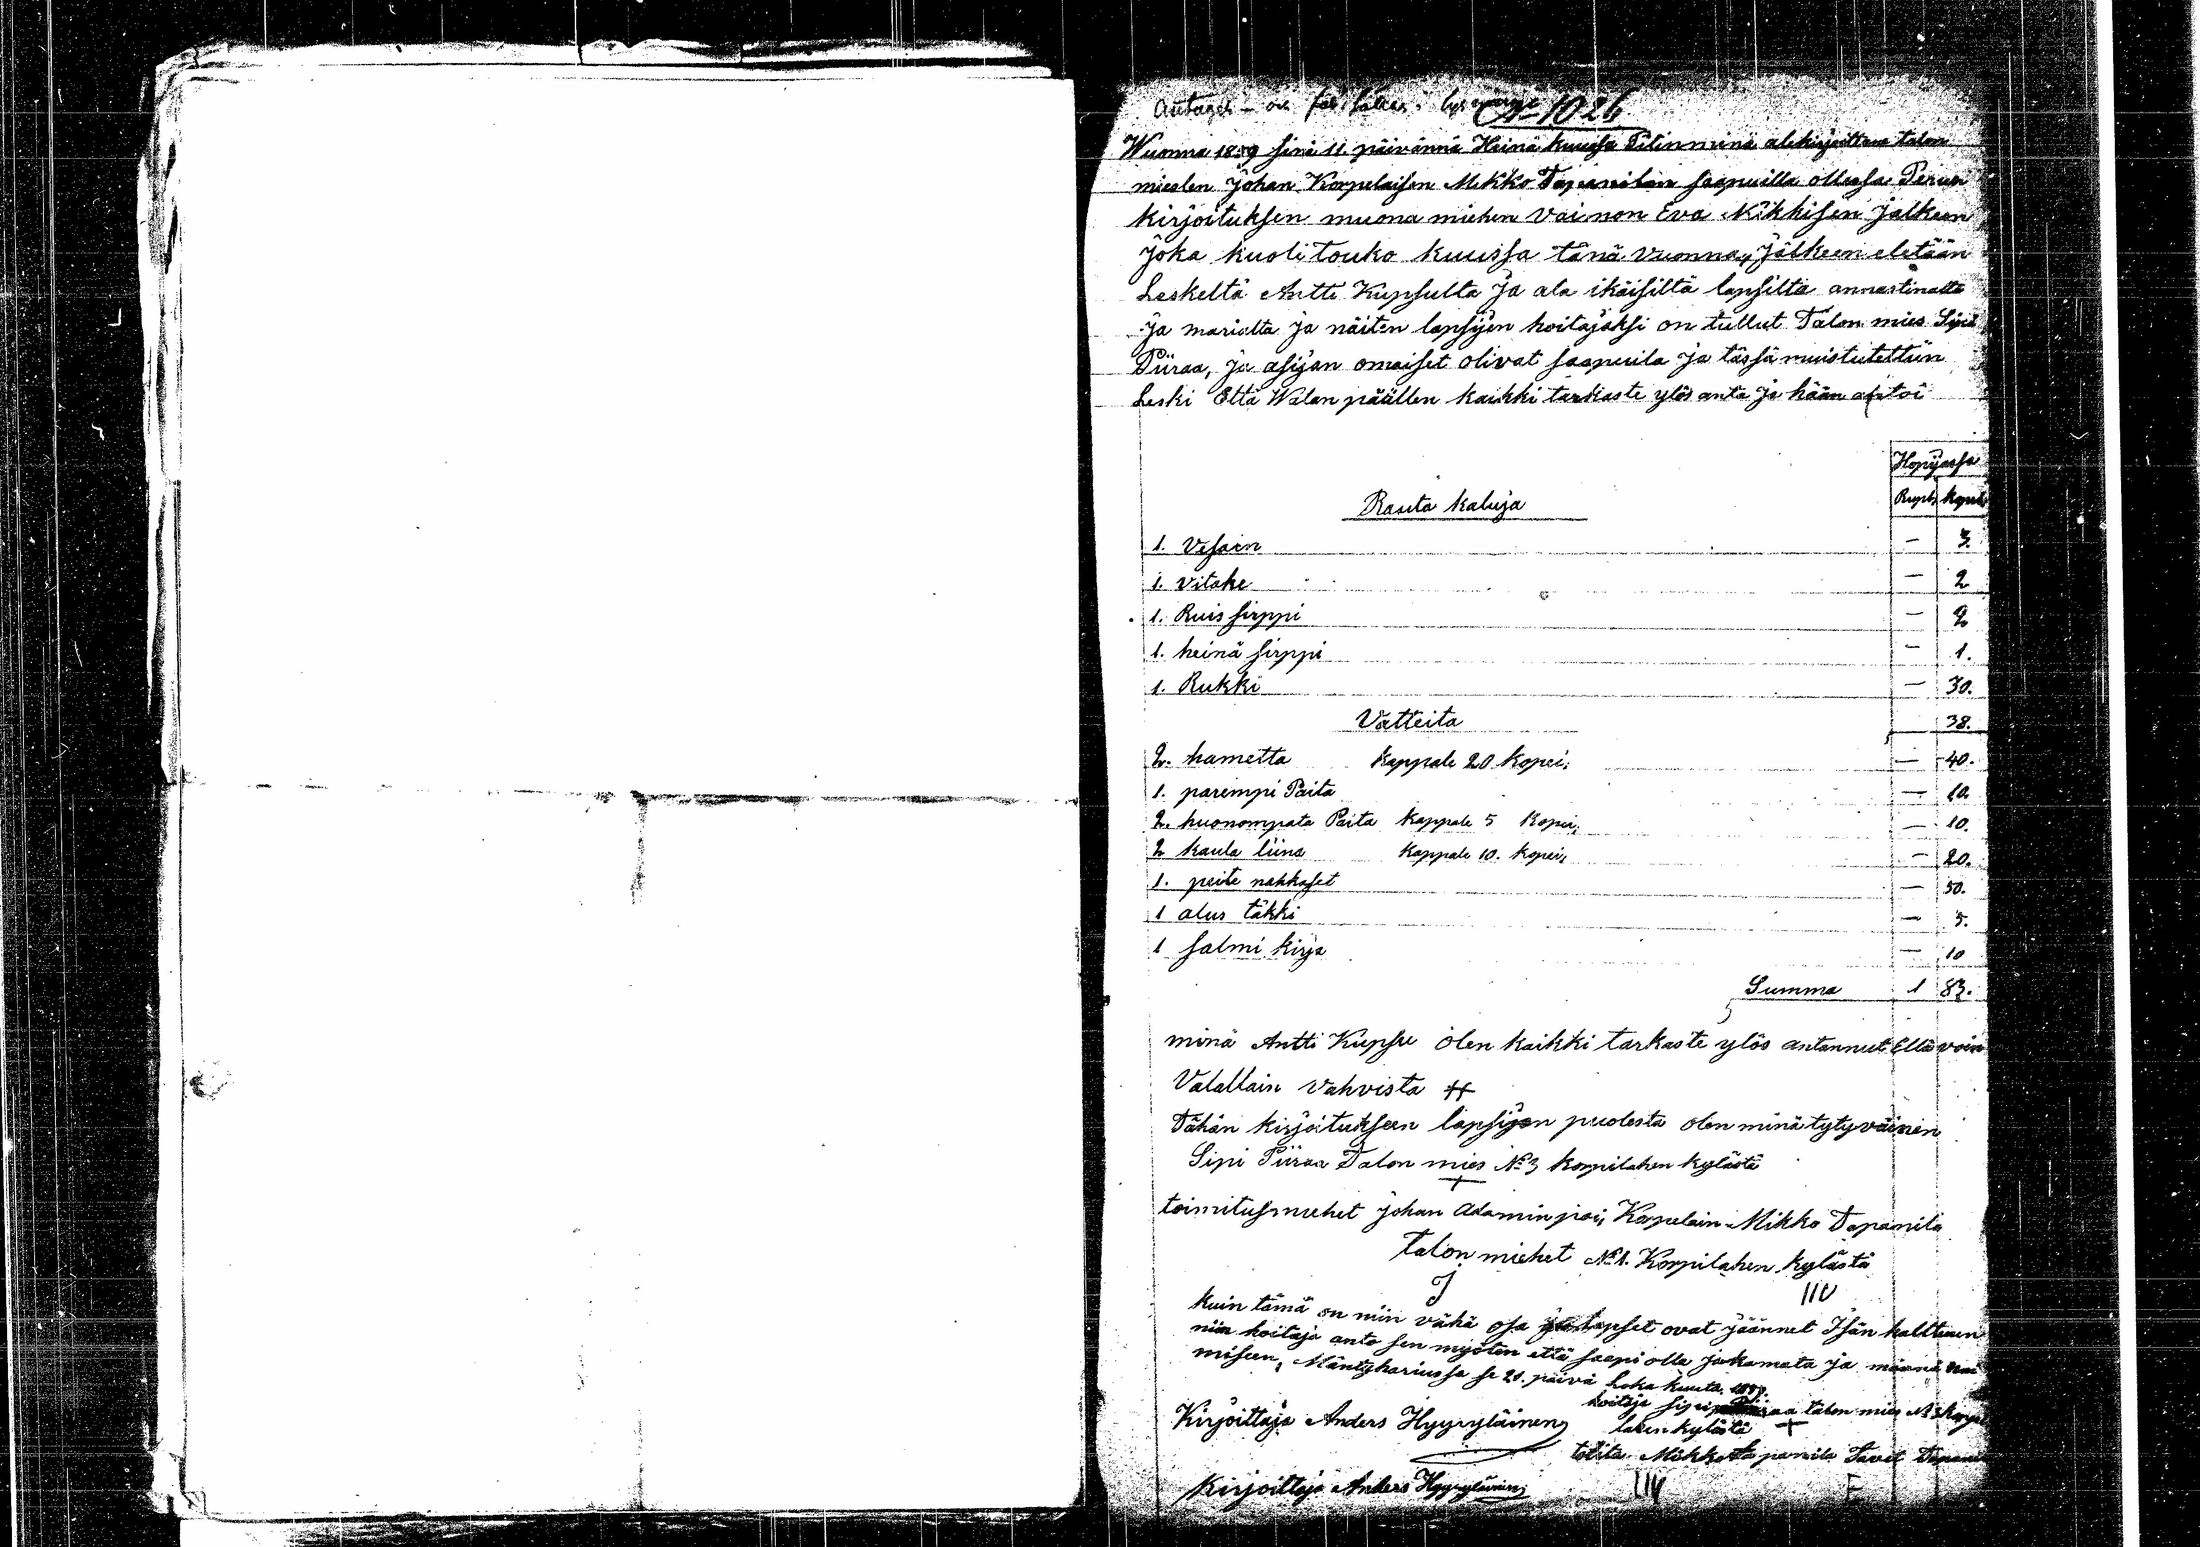 No 1026
Wuonna 1859 sinä 11. päivännä Heinä kuussa Pitin minä alekirjoittanu talon
miesten Johan Korpelaisen Mikko Tapanilan saapuilla ollessa Perun
kirjoituksen muona miehen Vaimon Eva Nikkisen Jälkeen
Joka kuoli Touko kuussa tänä vuonna, Jälkeen eletään
Leskeltä Antti Kupsulta Ja ala ikäisiltä lapsilta annastinalta
Ja marialta Ja näiten lapsijen hoitajaksi on tullut Talon mies Sipi
Piiraa, Ja asijan omaiset olivat saapuila Ja tässä muistutettiin
Leski Että Walan päällen kaikki tarkaste ylös anta Ja hään
Hopijassa
Rauta kaluja Rupl. kopek
1. Vesain — 3.
1. vitake — 2
1. Ruis sirppi — 2
1. heinä sirppi — 1.
1. Rukki — 30.
Vatteita 38.
2. hametta kappale 20 kopei, — 40.
1. parempi Paita — 10.
2. huonompata Paita kappale 5 kopei, — 10.
2 kaula liina kappale 10. kopei, — 20.
1. peite nahkaset — 50.
1 alus täkki — 5.
1 salmi kirja — 10
Summa 1 83.
minä Antti Kupsu olen kaikki tarkaste ylös antannut Että voin
Valallain vahvista
Tähän kirjoitukseen lapsijen puolesta olen minä tytyväinen
Sipi Piiraa Talon mies No 3 korpilahen kylästä
toimitusmiehet Johan Adamin poi, Korpelain Mikko Tapanila
talon miehet No 1. Korpilahen kylästä
kuin tämä on niin vähä osa ja lapset ovat Jäännet Isän haltteuen
niin hoitaja anto sen myöten että saapi olla Jakamata Ja määnä
miseen, Mäntyhariussa se 21. päivä Loka kuuta
hoitaja Sipi Piiraa talon mies No 3 Korpi
Kirjoittaja Anders Hyyryläinen lahen kylästä
toista Mikko Tapanila Tavit Tapani
Kirjoittaja Anders Hyyryläinen